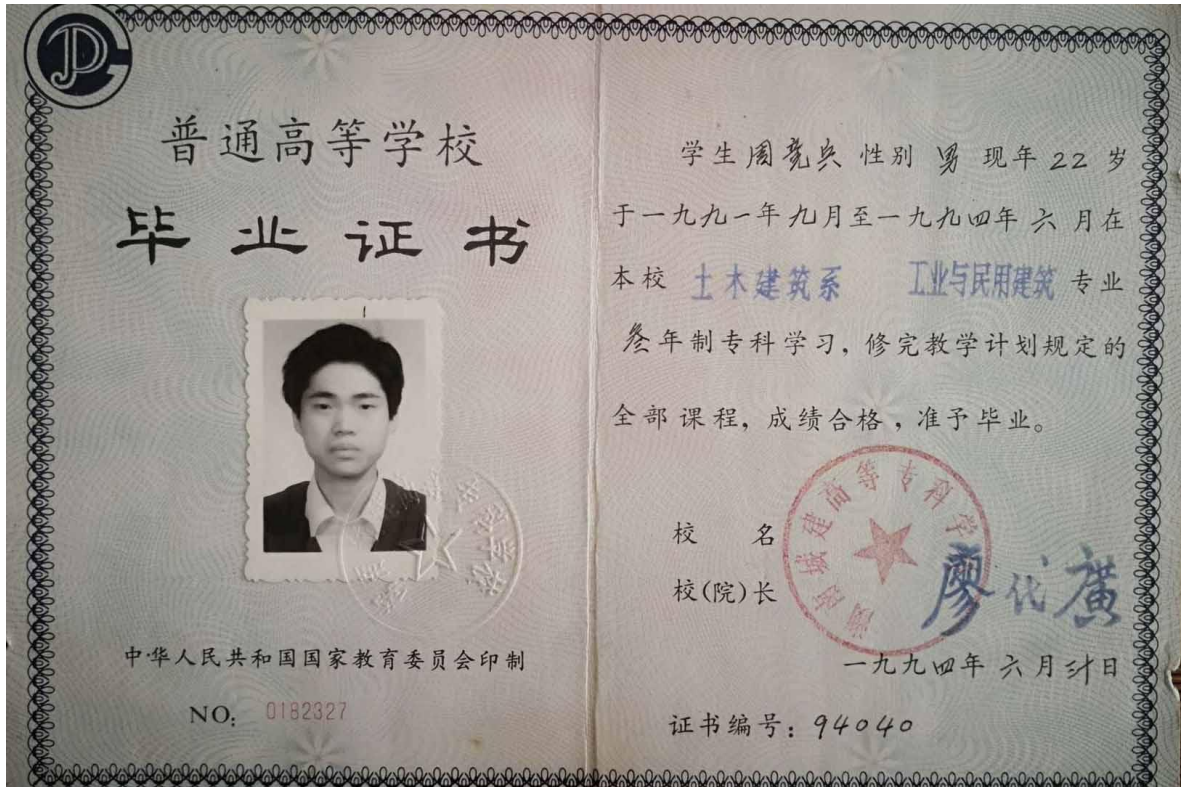 普通高等学校
毕业证书
中华人民共和国国家教育委员会印制
NO: 0182327
学生周亮兵 性别 男 现年 22 岁
于一九九一年九月至一九九四年 六 月在
本校 土木建筑系 工业与民用建筑 专业
叁年制专科学习,修完教学计划规定的
全部课程,成绩合格,准予毕业。
校 名
湖南城建高等专科学
校(院)长
廖代廣
一九九四年 六 月 卅日
证书编号: 94040